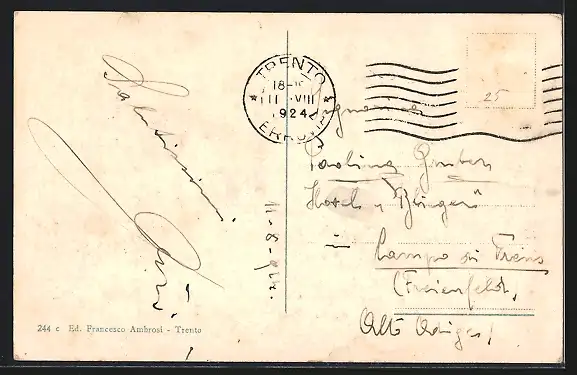 Salutissimi
TRENTO
18-
III VIII
1924
FERROVIA
25
11-8-924.
Signorina
Paolina Gruber
Hotel "Bliger"
in
Campo di Trens
(Freienfeld),
Alto Adige!
244 c Ed. Francesco Ambrosi - Trento